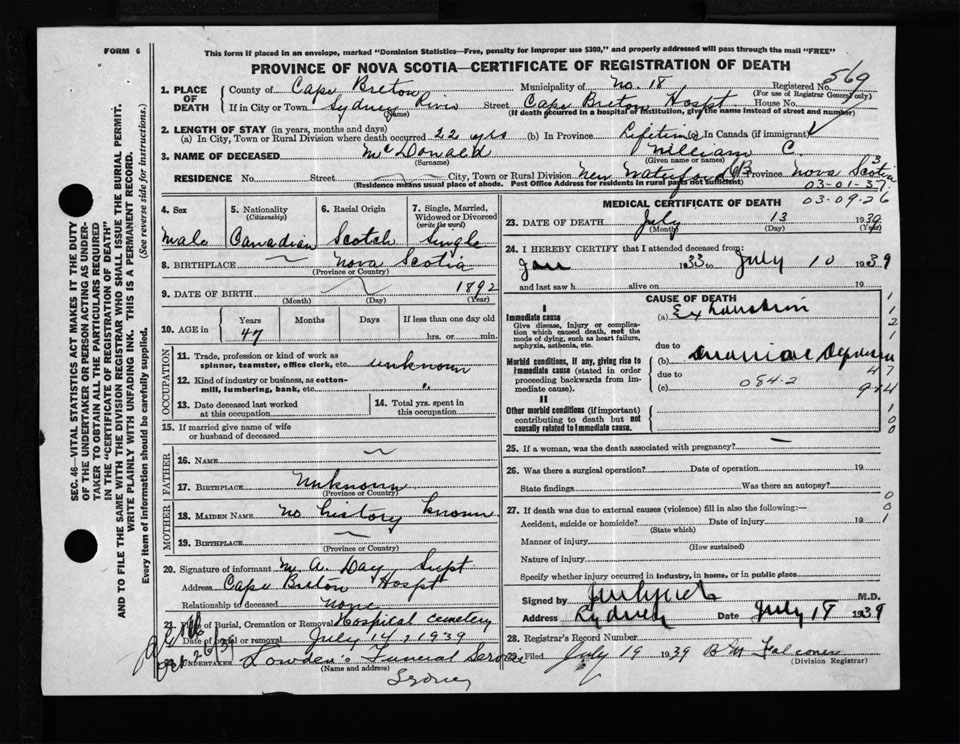 FORM 6
This form if placed in an envelope, marked "Dominion Statistics—Free, penalty for improper use $300," and properly addressed will pass through the mail "FREE"
PROVINCE OF NOVA SCOTIA—CERTIFICATE OF REGISTRATION OF DEATH
569
1. PLACE OF DEATH
County of Cape Breton Municipality of No. 18 Registered No.
(For use of Registrar General only)
If in City or Town Sydney River Street Cape Breton Hospt House No.
(Name) (If death occurred in a hospital or institution, give the name instead of street and number)
2. LENGTH OF STAY (in years, months and days)
(a) In City, Town or Rural Division where death occurred 22 yrs (b) In Province Lifetime (c) In Canada (if immigrant)
3. NAME OF DECEASED McDonald William C.
(Surname) (Given name or names)
RESIDENCE No. Street City, Town or Rural Division New Waterford CB Province Nova Scotia
(Residence means usual place of abode. Post Office Address for residents in rural parts not sufficient)
3
03-01-37
03-09-26
4. Sex
5. Nationality (Citizenship)
6. Racial Origin
7. Single, Married, Widowed or Divorced (write the word)
Male Canadian Scotch Single
8. BIRTHPLACE Nova Scotia
(Province or Country)
9. DATE OF BIRTH 1892
(Month) (Day) (Year)
10. AGE in
Years Months Days If less than one day old
47 hrs. or min.
OCCUPATION
11. Trade, profession or kind of work as spinner, teamster, office clerk, etc. unknown
12. Kind of industry or business, as cotton-mill, lumbering, bank, etc. "
13. Date deceased last worked at this occupation
14. Total yrs. spent in this occupation
15. If married give name of wife or husband of deceased
FATHER
16. NAME
17. BIRTHPLACE Unknown
(Province or Country)
MOTHER
18. MAIDEN NAME no history known
19. BIRTHPLACE
(Province or Country)
20. Signature of informant M. A. Day Supt
Address Cape Breton Hospt
Relationship to deceased none
21. Place of Burial, Cremation or Removal Hospital cemetery
Date of burial or removal July 14, 1939
22. UNDERTAKER Lowden's Funeral Service
(Name and address)
Sydney
26/39
MEDICAL CERTIFICATE OF DEATH
23. DATE OF DEATH July 13 1939
(Month) (Day) (Year)
24. I HEREBY CERTIFY that I attended deceased from:
Jan 1933 to July 10 1939
and last saw h alive on 19
CAUSE OF DEATH
I
Immediate cause
Give disease, injury or complication which caused death, not the mode of dying, such as heart failure, asphyxia, asthenia, etc.
(a) Exhaustion
due to
Morbid conditions, if any, giving rise to immediate cause (stated in order proceeding backwards from immediate cause).
(b)
due to
(c) 084.2
II
Other morbid conditions (if important) contributing to death but not causally related to immediate cause.
1
1
2
1
1
47
9
4
1
0
0
25. If a woman, was the death associated with pregnancy?
26. Was there a surgical operation? Date of operation 19
State findings Was there an autopsy?
27. If death was due to external causes (violence) fill in also the following:—
Accident, suicide or homicide? Date of injury 19
(State which)
Manner of injury
(How sustained)
Nature of injury
Specify whether injury occurred in industry, in home, or in public place
0
0
1
Signed by M.D.
Address Date July 18 1939
28. Registrar's Record Number
Filed July 19 1939 Falconer
(Division Registrar)
SEC. 46—VITAL STATISTICS ACT MAKES IT THE DUTY OF THE UNDERTAKER OR PERSON ACTING AS UNDERTAKER TO OBTAIN ALL THE PARTICULARS REQUIRED IN THE "CERTIFICATE OF REGISTRATION OF DEATH" AND TO FILE THE SAME WITH THE DIVISION REGISTRAR WHO SHALL ISSUE THE BURIAL PERMIT.
WRITE PLAINLY WITH UNFADING INK. THIS IS A PERMANENT RECORD.
Every item of information should be carefully supplied. (See reverse side for instructions.)